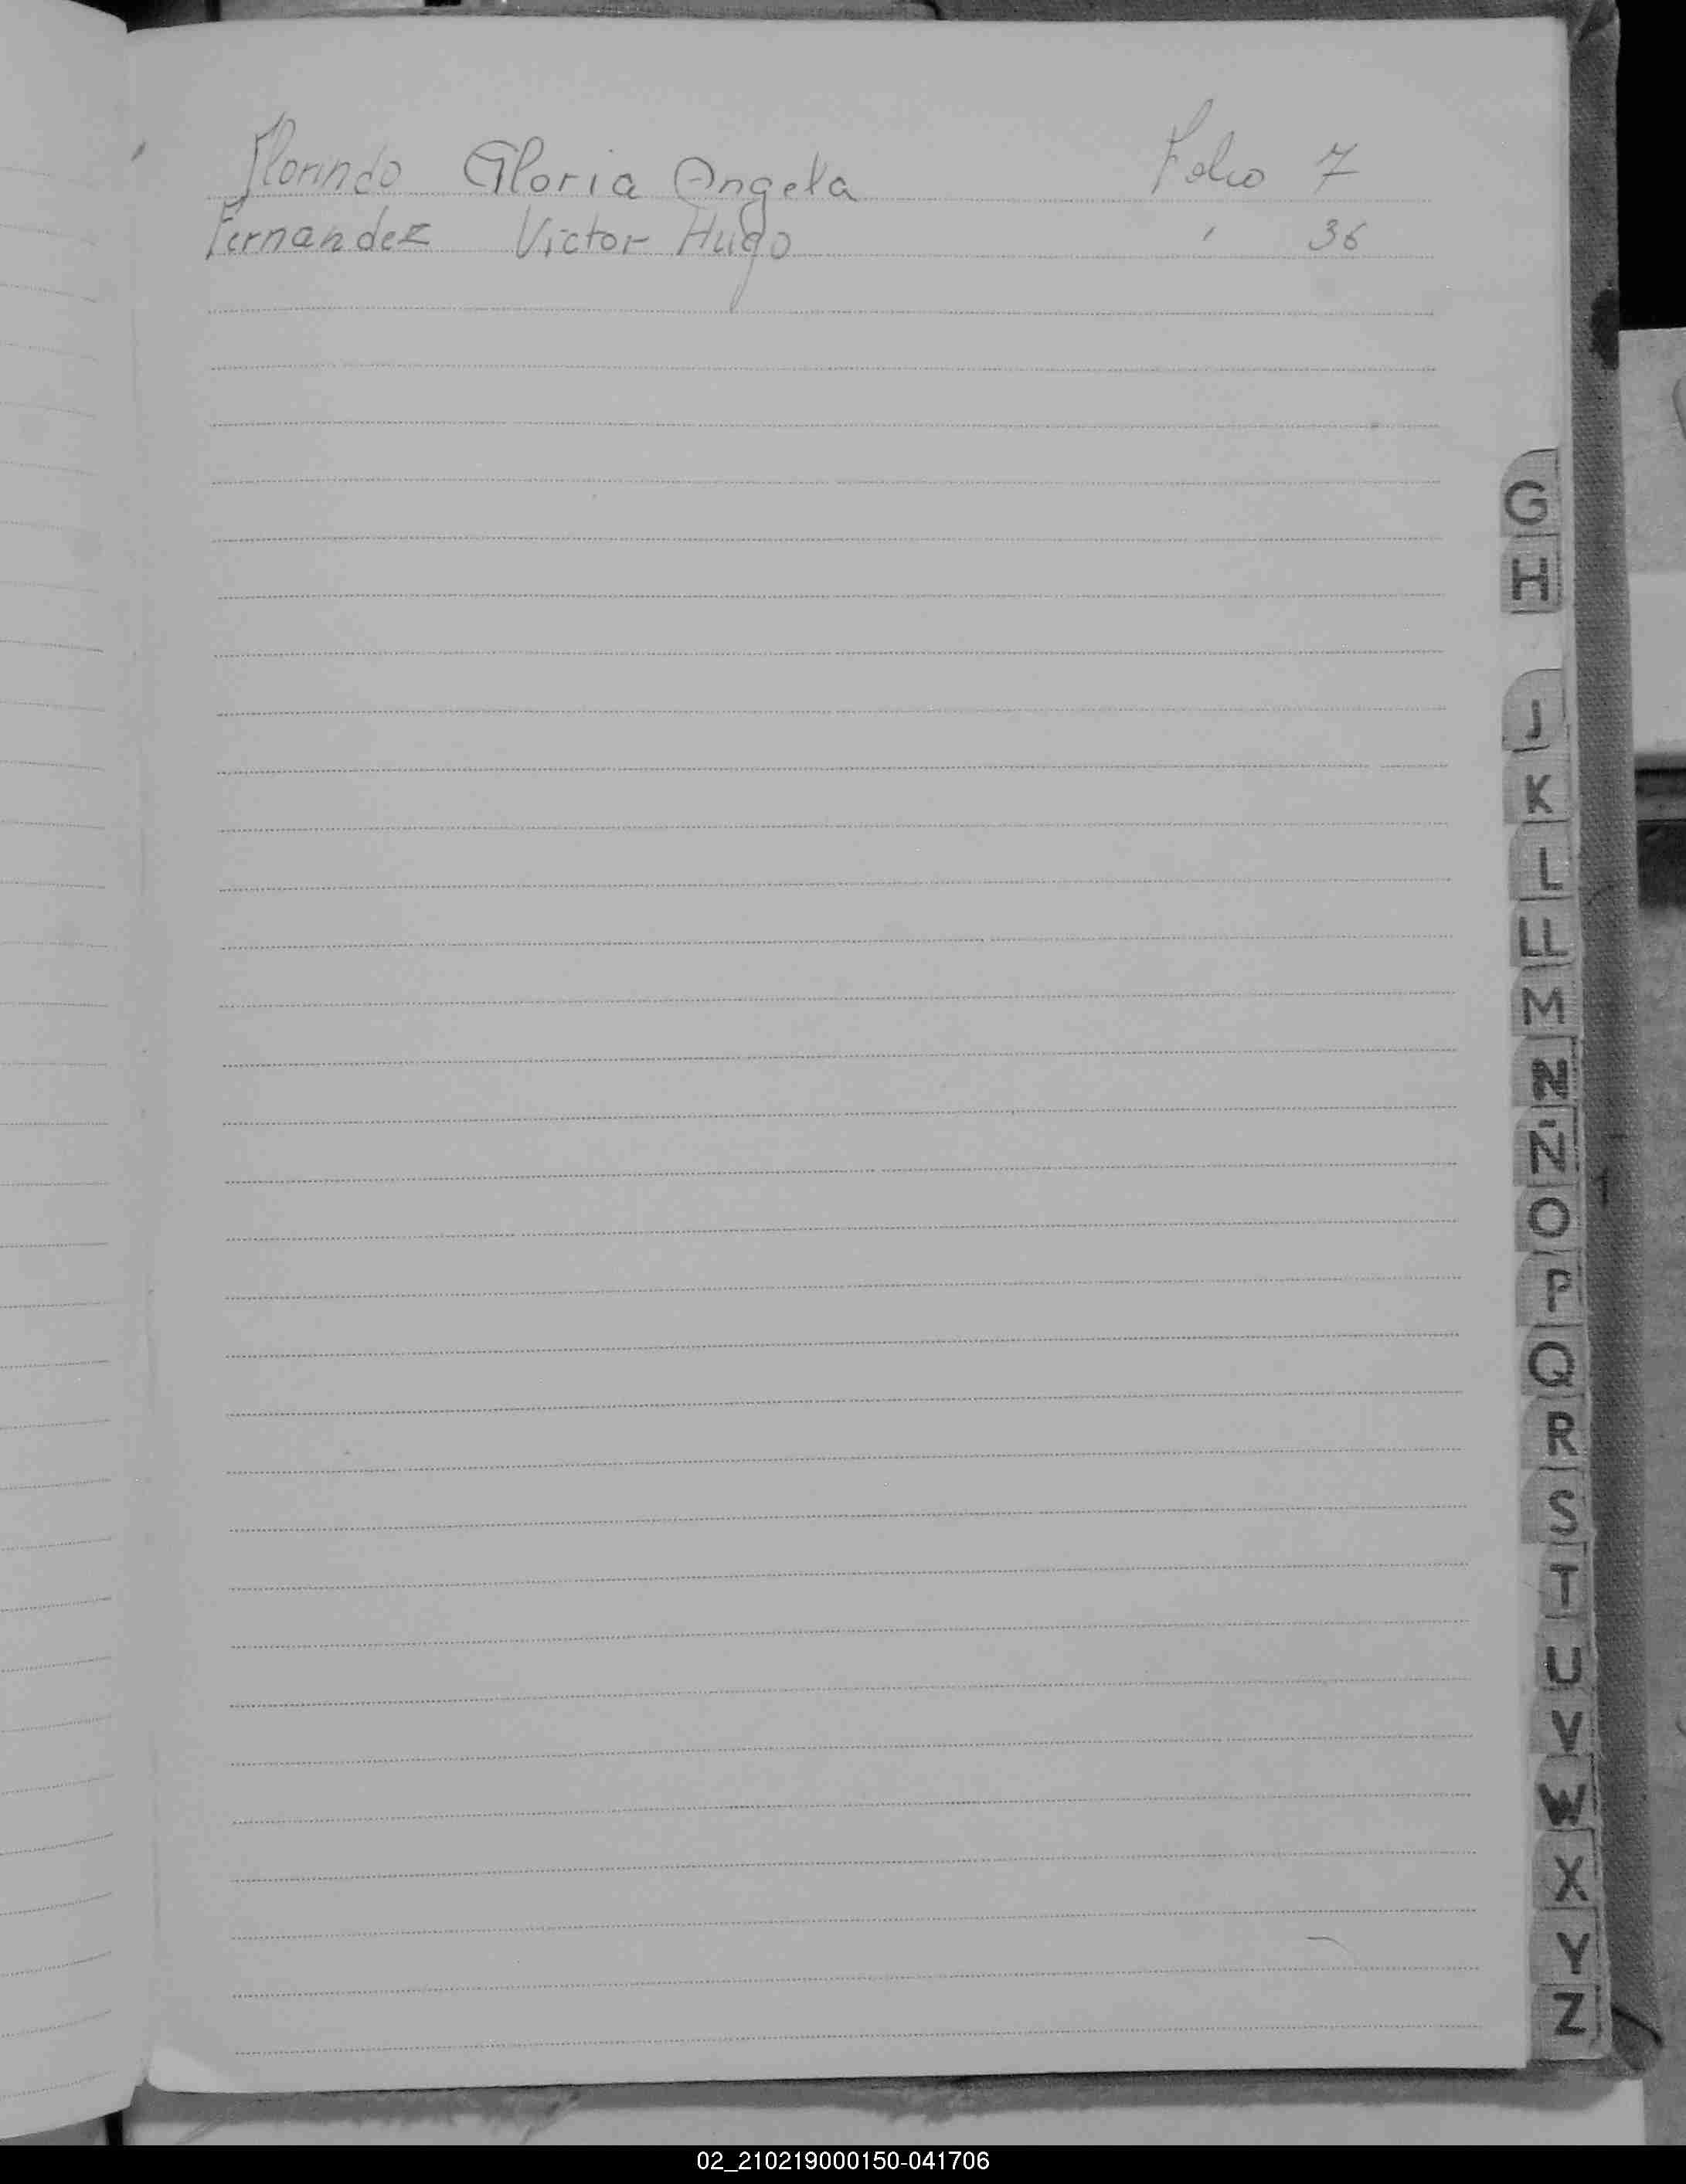 Florindo Gloria Angela Folio 7
Fernandez Victor Hugo ' 36
G
H
J
K
L
LL
M
N
Ñ
O
P
Q
R
S
T
U
V
W
X
Y
Z
02_210219000150-041706